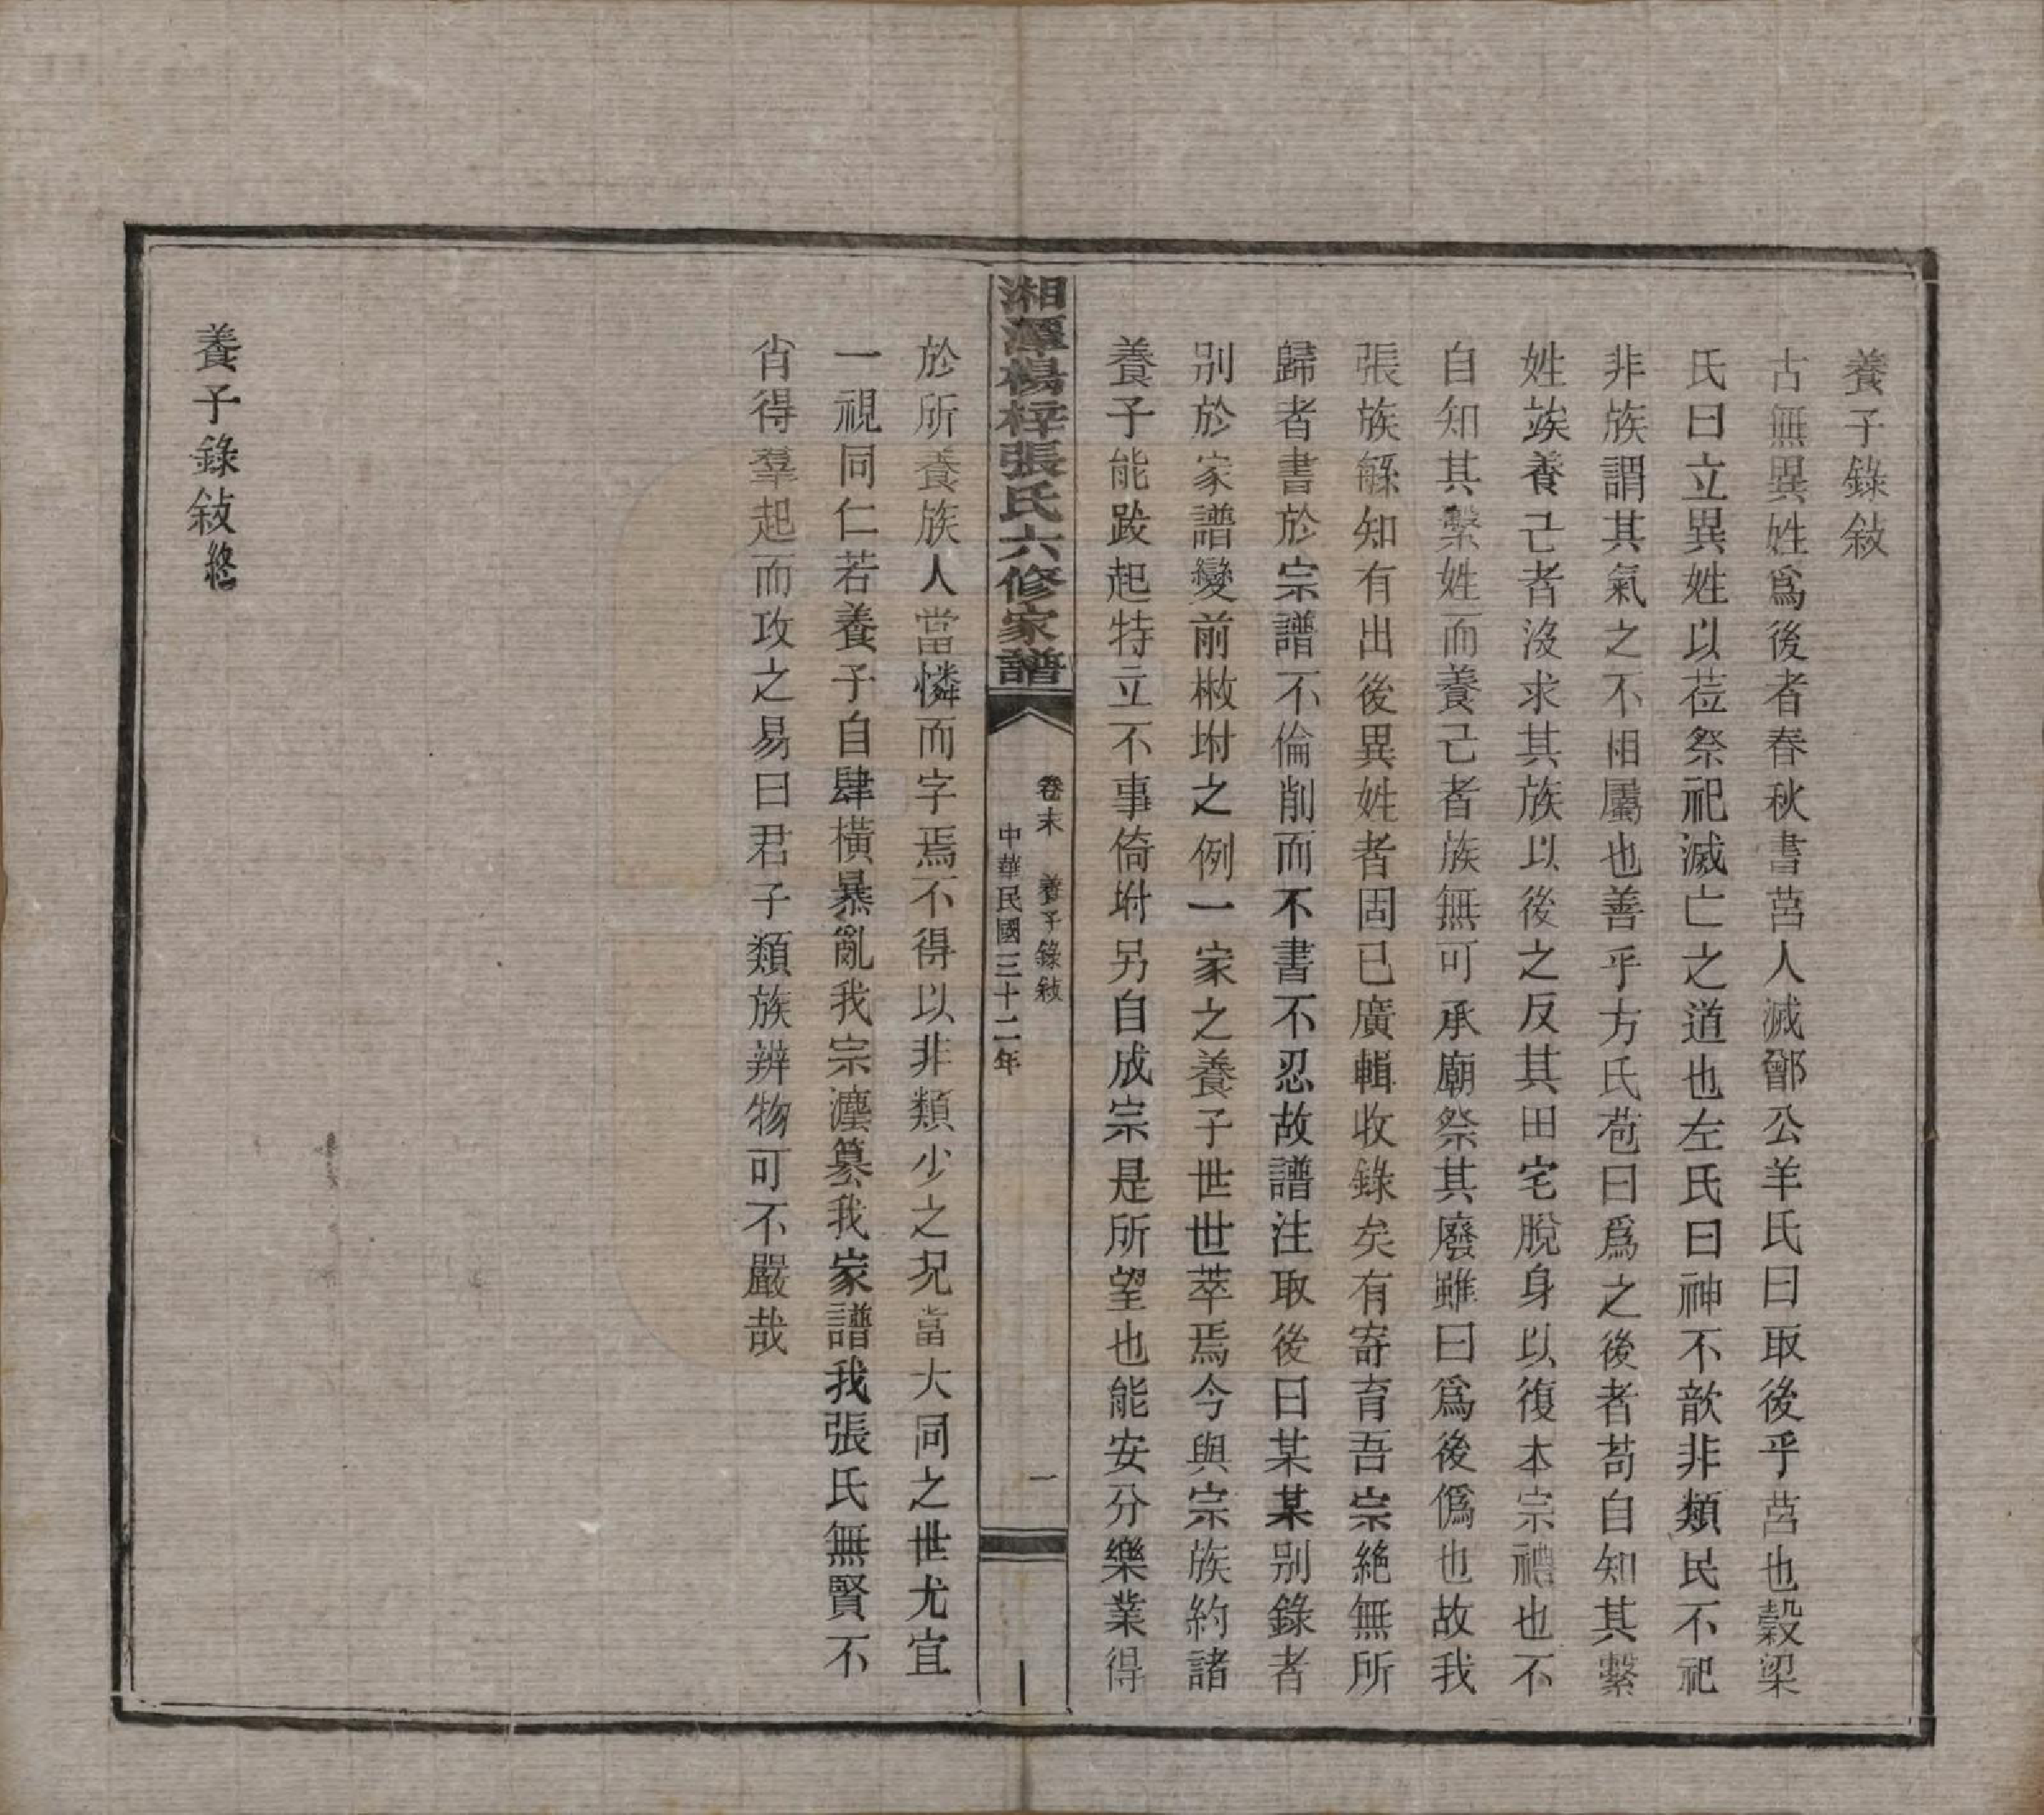 養子錄敍
古無異姓爲後者春秋書莒人滅鄫公羊氏曰取後乎莒也穀梁
氏曰立異姓以莅祭祀滅亡之道也左氏曰神不歆非類民不祀
非族謂其氣之不相屬也善乎方氏苞曰爲之後者苟自知其繫
姓竢養己者沒求其族以後之反其田宅脫身以復本宗禮也不
自知其繫姓而養己者族無可承廟祭其廢雖曰爲後僞也故我
張族繇知有出後異姓者固已廣輯收錄矣有寄育吾宗絶無所
歸者書於宗譜不倫削而不書不忍故譜注取後曰某某別錄者
別於家譜變前㪚坿之例一家之養子世世萃焉今與宗族約諸
養子能跋起特立不事倚坿另自成宗是所望也能安分樂業得
湘潭楊梓張氏六修家譜
卷末 養子錄敍 一
中華民國三十二年
於所養族人當憐而字焉不得以非類少之況當大同之世尤宜
一視同仁若養子自肆橫暴亂我宗瀍篡我家譜我張氏無賢不
肖得羣起而攻之易曰君子類族辨物可不嚴哉
養子錄敍終